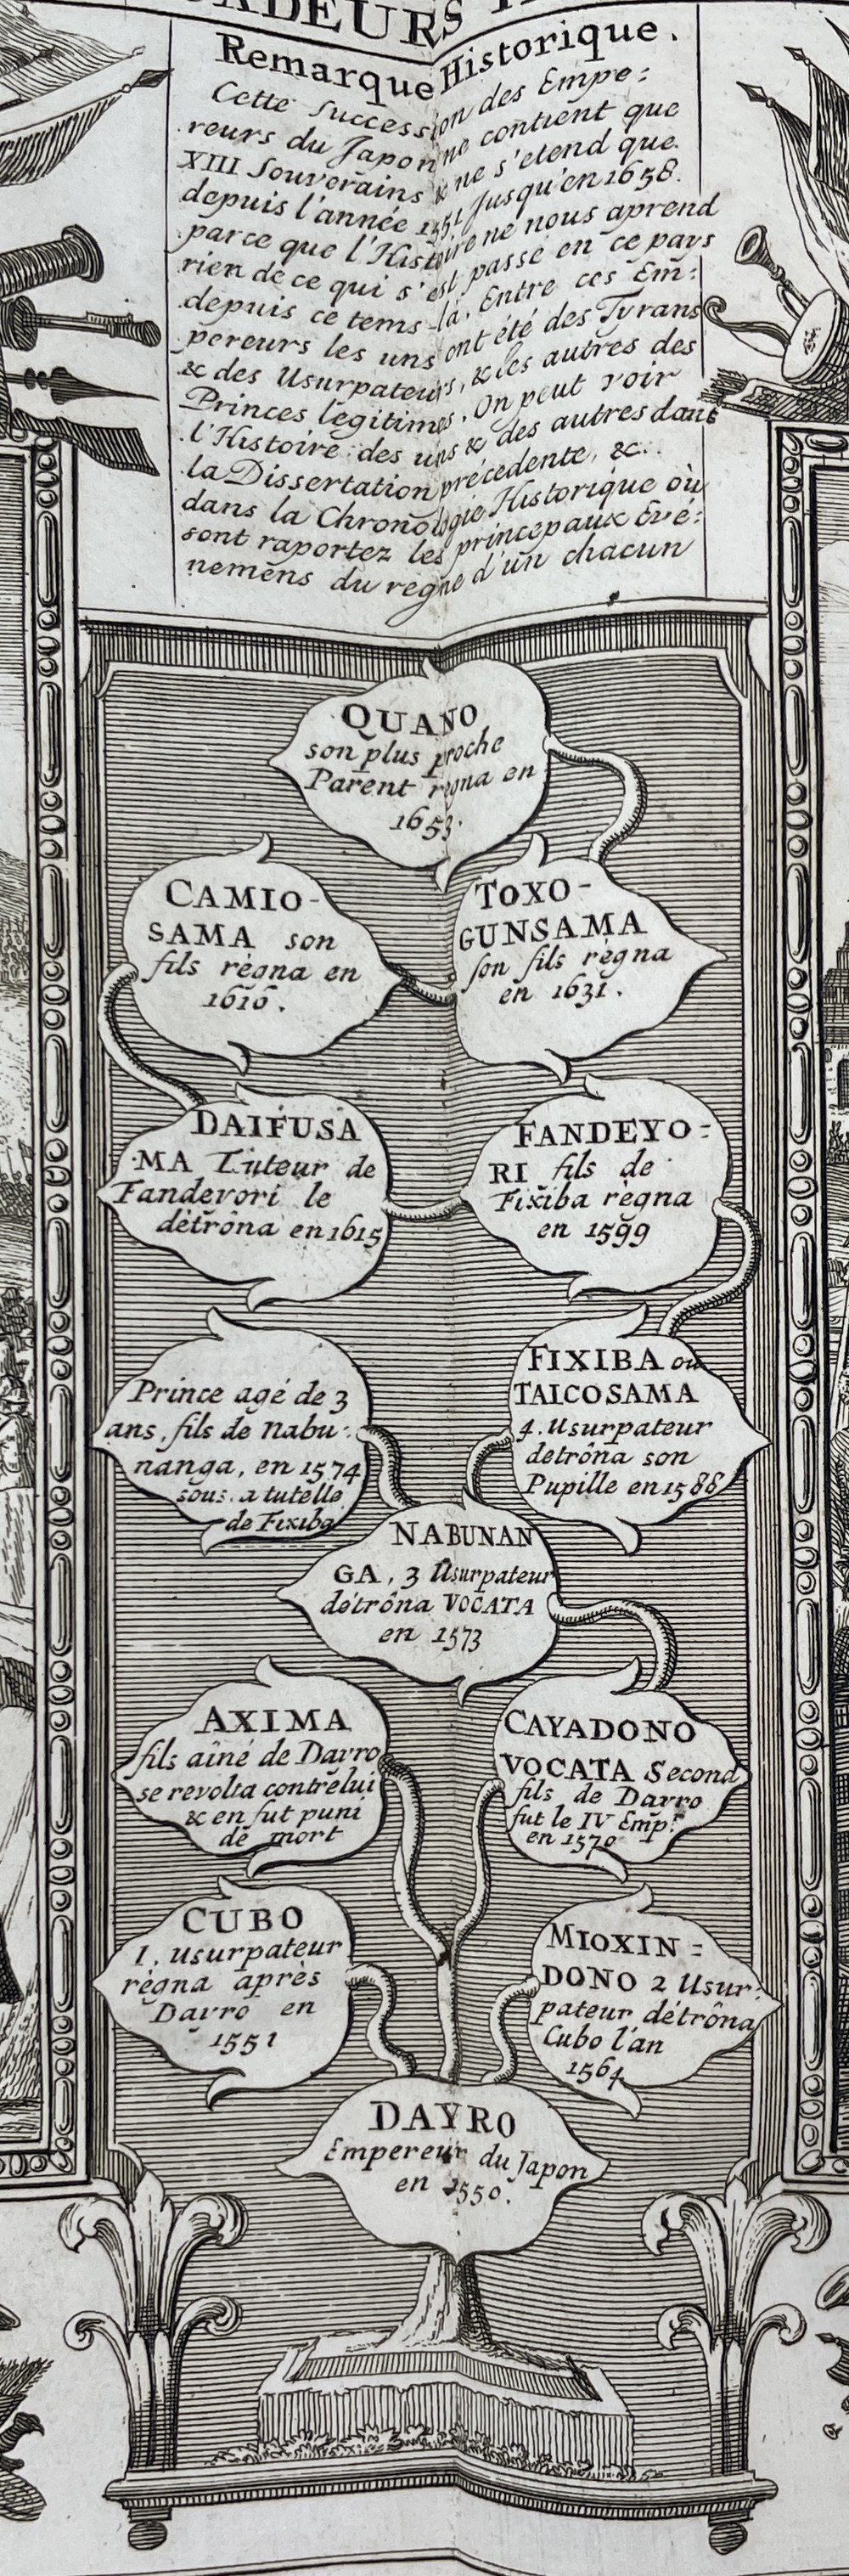 Remarque Historique.
Cette succession des Empe:
reurs du Japon ne contient que
XIII Souverains & ne s'etend que
depuis l'année 1551 Jusqu'en 1658.
parce que l'Histoire ne nous aprend
rien de ce qui s'est passé en ce pays
depuis ce tems-là. Entre ces Em:
pereurs les uns ont été des Tyrans
& des Usurpateurs, & les autres des
Princes legitimes. On peut voir
l'Histoire des uns & des autres dans
la Dissertation précedente, &c.
dans la Chronologie Historique où
sont raportez les princepaux Evé:
nemens du regne d'un chacun
QUANO
son plus proche
Parent regna en
1653.
CAMIO-
SAMA son
fils règna en
1616.
TOXO-
GUNSAMA
son fils règna
en 1631.
DAIFUSA
MA Tuteur de
Fandeyori le
détrôna en 1615
FANDEYO=
RI fils de
Fixiba règna
en 1599
Prince agé de 3
ans, fils de Nabu-
nanga, en 1574
sous a tutelle
de Fixiba
FIXIBA ou
TAICOSAMA
4. Usurpateur
detrôna son
Pupille en 1588
NABUNAN
GA, 3 Usurpateur
détrôna VOCATA
en 1573
AXIMA
fils aîné de Dayro
se revolta contre lui
& en fut puni
de mort
CAYADONO
VOCATA Second
fils de Dayro
fut le IV Emp.r
en 1570
CUBO
1. usurpateur
règna après
Dayro en
1551
MIOXIN=
DONO 2 Usur:
pateur détrôna
Cubo l'an
1564
DAYRO
Empereur du Japon
en 1550.